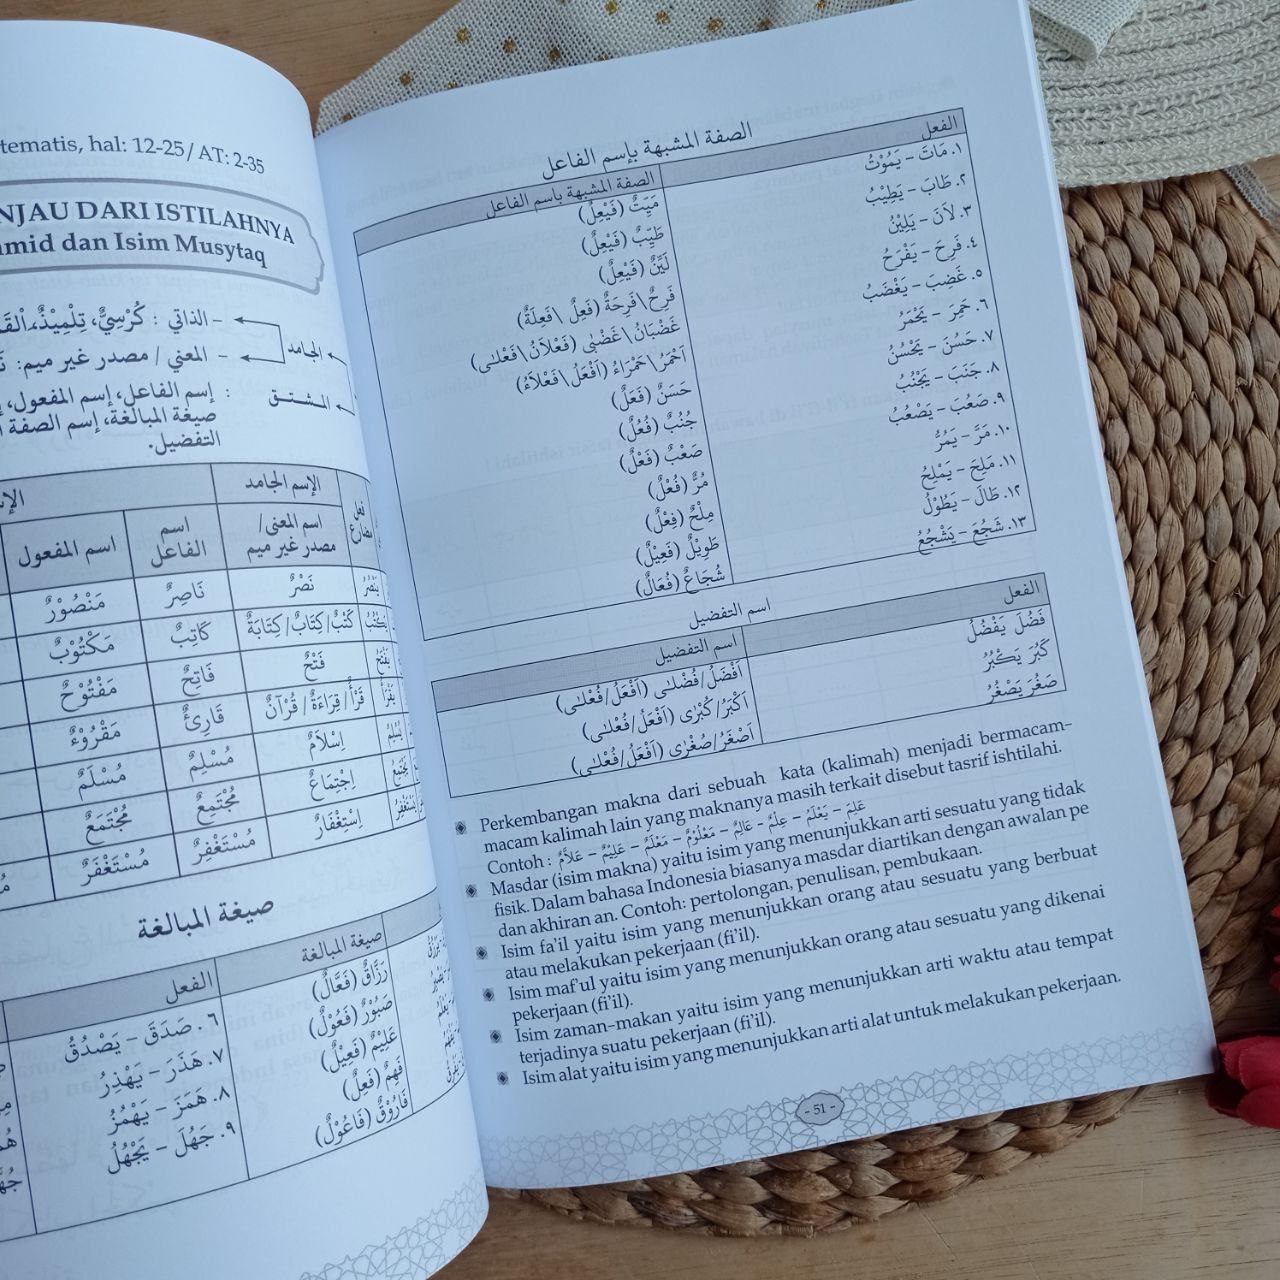 tematis, hal: 12-25/ AT: 2-35
NJAU DARI ISTILAHNYA
mid dan Isim Musytaq
الجامد
– الذاتي : كُرْسِيٌّ، تِلْمِيْذٌ،
– المعني / مصدر غير ميم:
المشتق : إسم الفاعل، إسم المفعول،
صيغة المبالغة، إسم الصفة
التفضيل.
الإسم الجامد
فعل مضارع | اسم المعنى/ مصدر غير ميم | اسم الفاعل | اسم المفعول
يَنْصُرُ | نَصْرٌ | نَاصِرٌ | مَنْصُوْرٌ
يَكْتُبُ | كَتْبٌ/كِتَابٌ/كِتَابَةٌ | كَاتِبٌ | مَكْتُوْبٌ
يَفْتَحُ | فَتْحٌ | فَاتِحٌ | مَفْتُوْحٌ
يَقْرَأُ | قَرْأٌ/قِرَاءَةٌ/قُرْآنٌ | قَارِئٌ | مَقْرُوْءٌ
يُسْلِمُ | اِسْلَامٌ | مُسْلِمٌ | مُسْلَمٌ
يَجْتَمِعُ | اِجْتِمَاعٌ | مُجْتَمِعٌ | مُجْتَمَعٌ
يَسْتَغْفِرُ | اِسْتِغْفَارٌ | مُسْتَغْفِرٌ | مُسْتَغْفَرٌ
صيغة المبالغة
صيغة المبالغة | الفعل
رَزَّاقٌ (فَعَّالٌ) | ٦. صَدَقَ – يَصْدُقُ
صَبُوْرٌ (فَعُوْلٌ) | ٧. هَذَرَ – يَهْذِرُ
عَلِيْمٌ (فَعِيْلٌ) | ٨. هَمَزَ – يَهْمُزُ
فَهِمٌ (فَعِلٌ) | ٩. جَهُلَ – يَجْهُلُ
فَارُوْقٌ (فَاعُوْلٌ)
الصفة المشبهة بإسم الفاعل
الفعل | الصفة المشبهة باسم الفاعل
١. مَاتَ – يَمُوْتُ | مَيِّتٌ (فَيْعِلٌ)
٢. طَابَ – يَطِيْبُ | طَيِّبٌ (فَيْعِلٌ)
٣. لَانَ – يَلِيْنُ | لَيِّنٌ (فَيْعِلٌ)
٤. فَرِحَ – يَفْرَحُ | فَرِحٌ\فَرِحَةٌ (فَعِلٌ \فَعِلَةٌ)
٥. غَضِبَ – يَغْضَبُ | غَضْبَانُ\غَضْبٰى (فَعْلَانُ\فَعْلٰى)
٦. حَمِرَ – يَحْمَرُ | اَحْمَرُ\حَمْرَاءُ (اَفْعَلُ\فَعْلَاءُ)
٧. حَسُنَ – يَحْسُنُ | حَسَنٌ (فَعَلٌ)
٨. جَنَبَ – يَجْنُبُ | جُنُبٌ (فُعُلٌ)
٩. صَعُبَ – يَصْعُبُ | صَعْبٌ (فَعْلٌ)
١٠. مَرَّ – يَمُرُّ | مُرٌّ (فُعْلٌ)
١١. مَلِحَ – يَمْلِحُ | مِلْحٌ (فِعْلٌ)
١٢. طَالَ – يَطُوْلُ | طَوِيْلٌ (فَعِيْلٌ)
١٣. شَجُعَ – يَشْجُعُ | شُجَاعٌ (فُعَالٌ)
اسم التفضيل
الفعل | اسم التفضيل
فَضُلَ يَفْضُلُ | اَفْضَلُ/فُضْلٰى (اَفْعَلُ/فُعْلٰى)
كَبُرَ يَكْبُرُ | اَكْبَرُ/كُبْرٰى (اَفْعَلُ/فُعْلٰى)
صَغُرَ يَصْغُرُ | اَصْغَرُ/صُغْرٰى (اَفْعَلُ/فُعْلٰى)
Perkembangan makna dari sebuah kata (kalimah) menjadi bermacam-
macam kalimah lain yang maknanya masih terkait disebut tasrif ishtilahi.
Contoh : عَلِمَ – يَعْلَمُ – عِلْمٌ – عَالِمٌ – مَعْلُوْمٌ – مَعْلَمٌ – عَلِيْمٌ – عَلَّامٌ
Masdar (isim makna) yaitu isim yang menunjukkan arti sesuatu yang tidak
fisik. Dalam bahasa Indonesia biasanya masdar diartikan dengan awalan pe
dan akhiran an. Contoh: pertolongan, penulisan, pembukaan.
Isim fa'il yaitu isim yang menunjukkan orang atau sesuatu yang berbuat
atau melakukan pekerjaan (fi'il).
Isim maf'ul yaitu isim yang menunjukkan orang atau sesuatu yang dikenai
pekerjaan (fi'il).
Isim zaman-makan yaitu isim yang menunjukkan arti waktu atau tempat
terjadinya suatu pekerjaan (fi'il).
Isim alat yaitu isim yang menunjukkan arti alat untuk melakukan pekerjaan.
- 51 -